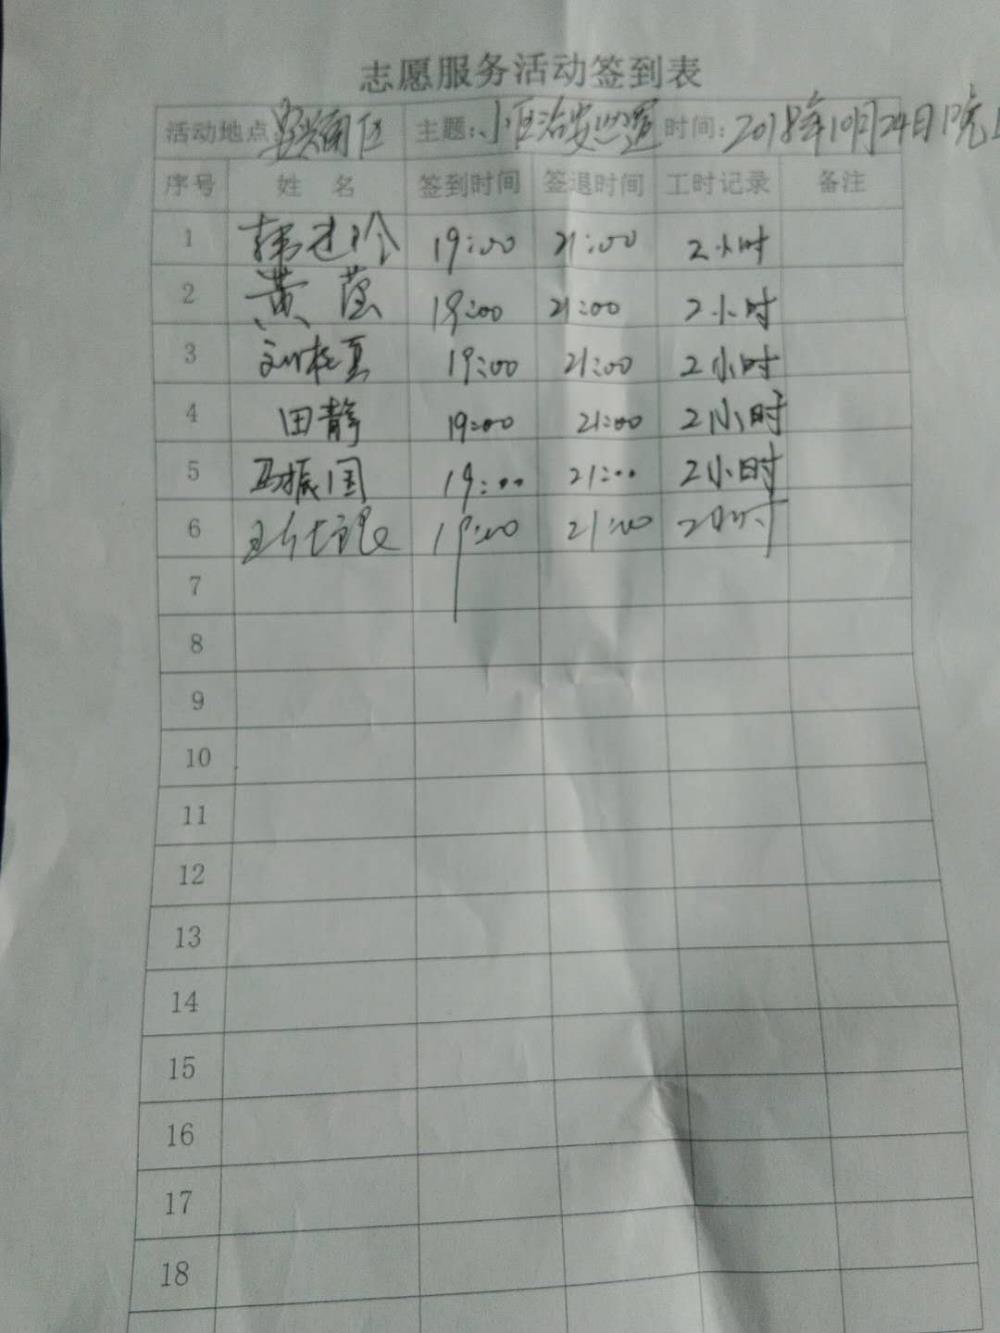 志愿服务活动签到表
活动地点: 南区 主题:小区治安巡逻 时间:2018年10月24日晚
序号 姓 名 签到时间 签退时间 工时记录 备注
1 19:00 21:00 2小时
2 黄 19:00 21:00 2小时
3 刘桂 19:00 21:00 2小时
4 田静 19:00 21:00 2小时
5 马振国 19:00 21:00 2小时
6 19:00 21:00 2小时
7
8
9
10
11
12
13
14
15
16
17
18